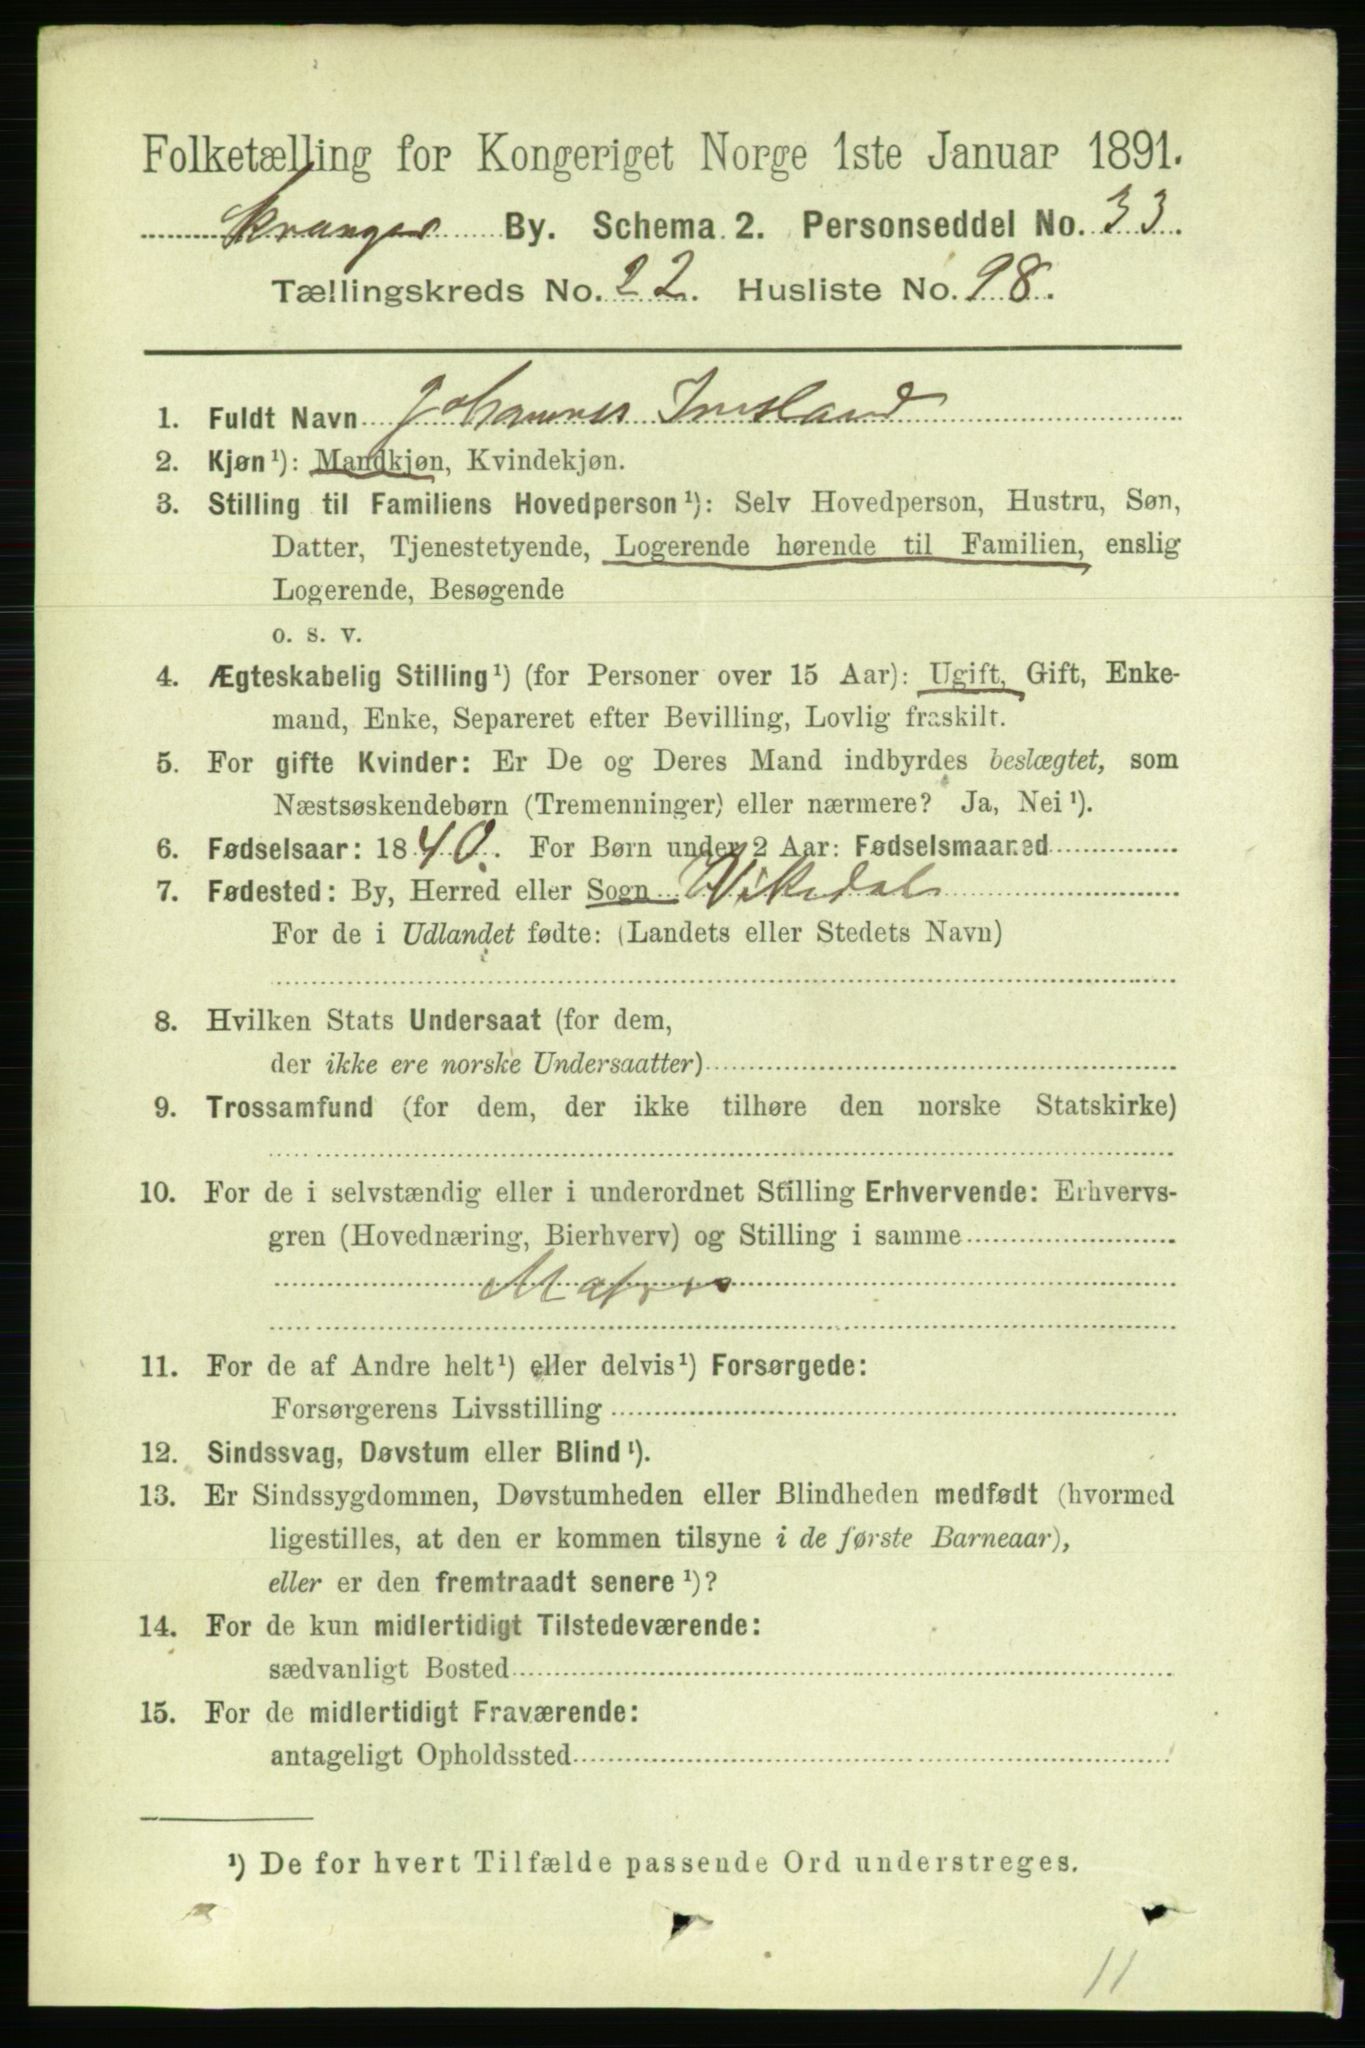 Folketælling for Kongeriget Norge 1ste Januar 1891.
By. Schema 2. Personseddel No. 33.
Tællingskreds No. 22. Husliste No. 98.
1. Fuldt Navn Johannes Imsland
2. Kjøn¹): Mandkjøn, Kvindekjøn.
3. Stilling til Familiens Hovedperson¹): Selv Hovedperson, Hustru, Søn,
Datter, Tjenestetyende, Logerende hørende til Familien, enslig
Logerende, Besøgende
o. s. v.
4. Ægteskabelig Stilling¹) (for Personer over 15 Aar): Ugift, Gift, Enke-
mand, Enke, Separeret efter Bevilling, Lovlig fraskilt.
5. For gifte Kvinder: Er De og Deres Mand indbyrdes beslægtet, som
Næstsøskendebørn (Tremenninger) eller nærmere? Ja, Nei¹).
6. Fødselsaar: 1840. For Børn under 2 Aar: Fødselsmaaned
7. Fødested: By, Herred eller Sogn Vikedal
For de i Udlandet fødte: (Landets eller Stedets Navn)
8. Hvilken Stats Undersaat (for dem,
der ikke ere norske Undersaatter)
9. Trossamfund (for dem, der ikke tilhøre den norske Statskirke)
10. For de i selvstændig eller i underordnet Stilling Erhvervende: Erhvervs-
gren (Hovednæring, Bierhverv) og Stilling i samme
Matros
11. For de af Andre helt¹) eller delvis¹) Forsørgede:
Forsørgerens Livsstilling
12. Sindssvag, Døvstum eller Blind¹).
13. Er Sindssygdommen, Døvstumheden eller Blindheden medfødt (hvormed
ligestilles, at den er kommen tilsyne i de første Barneaar),
eller er den fremtraadt senere¹)?
14. For de kun midlertidigt Tilstedeværende:
sædvanligt Bosted
15. For de midlertidigt Fraværende:
antageligt Opholdssted
¹) De for hvert Tilfælde passende Ord understreges.
11